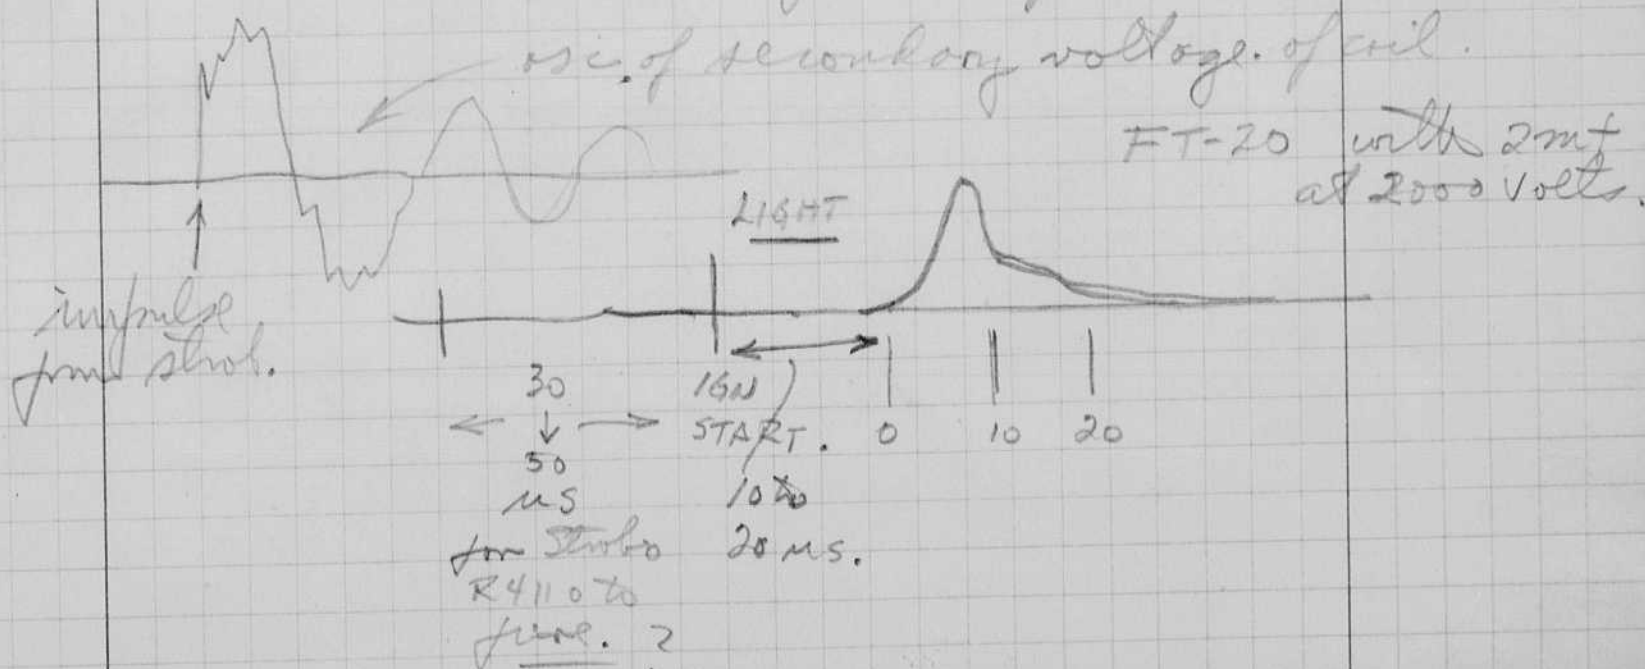 osc. of secondary voltage. of coil.
FT-20 with 2mf
at 2000 Volts.
LIGHT
impulse
from strob.
30
↓
50
μs
for Strobo
R4110 to
fire. ?
IGN
START.
10 to
20 μs.
0 10 20